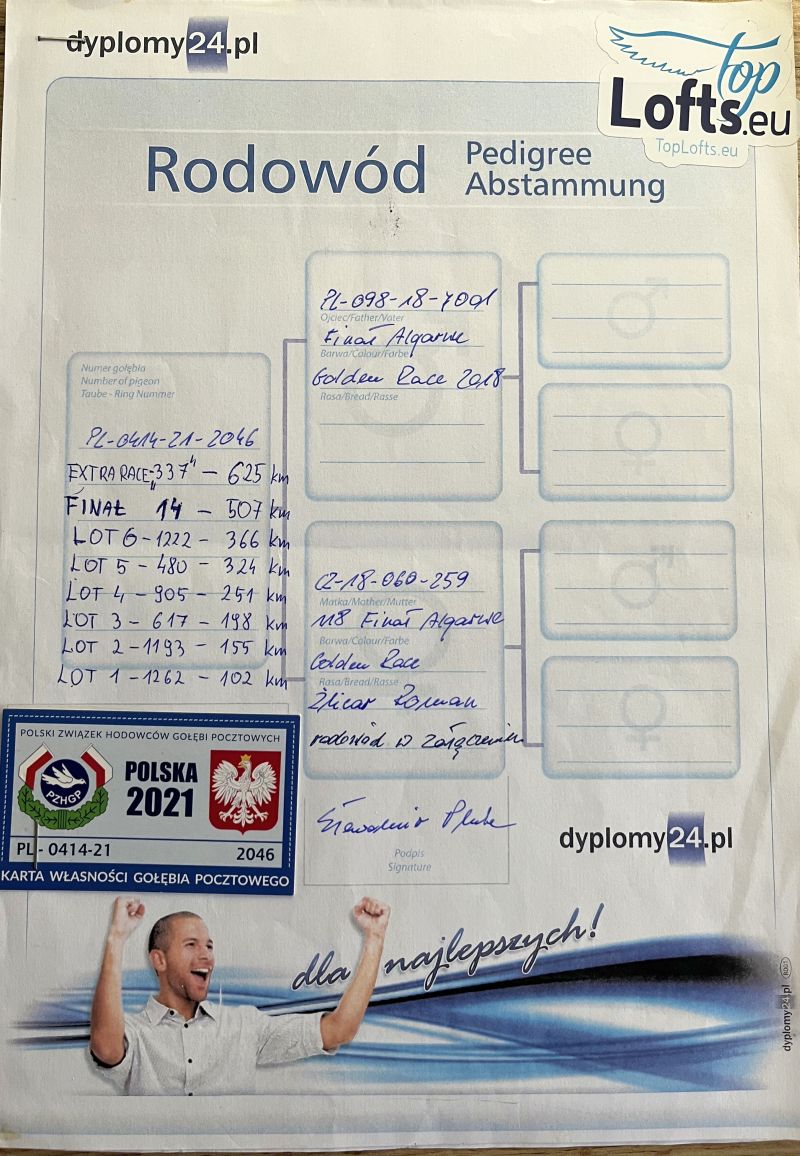 dyplomy24.pl
top
Lofts.eu
TopLofts.eu
Rodowód
Pedigree
Abstammung
Numer gołębia
Number of pigeon
Taube - Ring Nummer
PL-0414-21-2046
EXTRA RACE-337" - 625 km
FINAŁ 14 - 507 km
LOT 6-1222 - 366 km
LOT 5 - 480 - 324 km
LOT 4 - 905 - 251 km
LOT 3 - 617 - 198 km
LOT 2-1193 - 155 km
LOT 1-1262 - 102 km
PL-098-18-7001
Ojciec/Father/Vater
Finał Algarve
Barwa/Colour/Farbe
Golden Race 2018
Rasa/Bread/Rasse
CZ-18-060-259
Matka/Mother/Mutter
118 Finał Algarve
Barwa/Colour/Farbe
Golden Race
Rasa/Bread/Rasse
Roman
rodowód w załączeniu
Podpis
Signature
dyplomy24.pl
POLSKI ZWIĄZEK HODOWCÓW GOŁĘBI POCZTOWYCH
PZHGP
POLSKA
2021
PL - 0414-21
2046
KARTA WŁASNOŚCI GOŁĘBIA POCZTOWEGO
dla najlepszych!
dyplomy24.pl